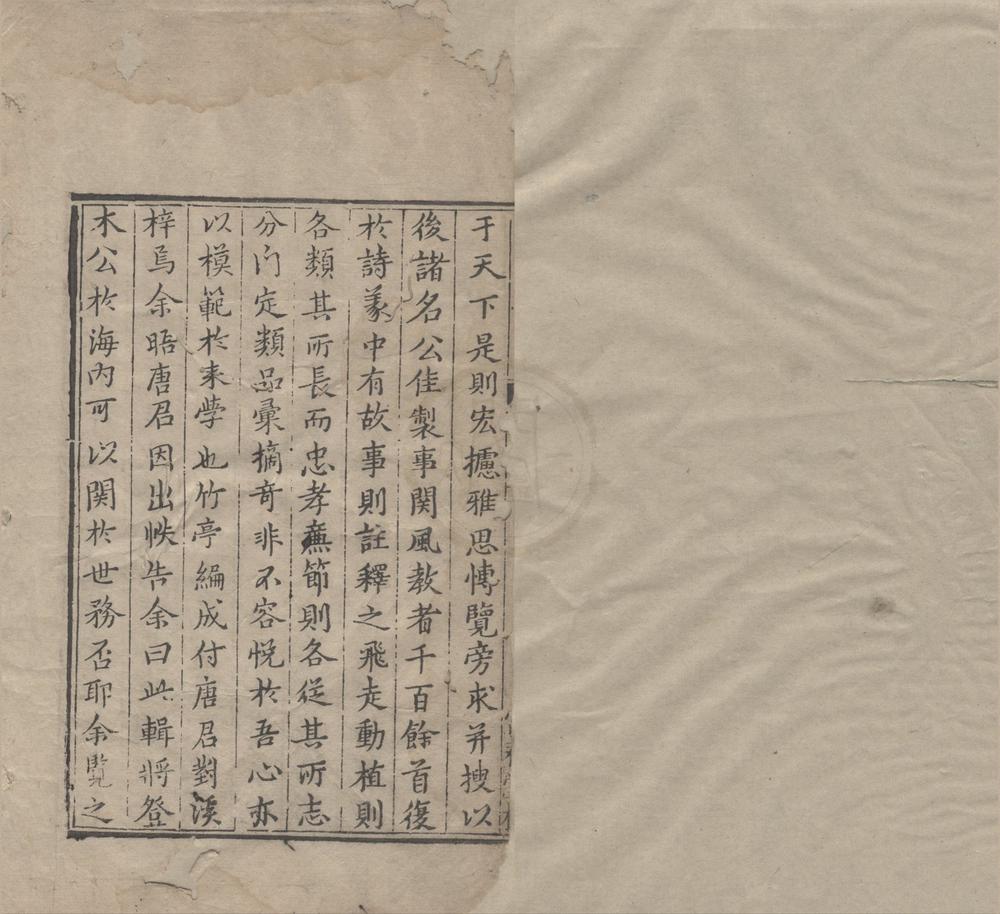 于天下是則宏攄雅思博覽旁求并搜以
後諸名公佳製事関風教者千百餘首復
於詩義中有故事則註釋之飛走動植則
各類其所長而忠孝㢘節則各從其所志
分门定類品彙摘竒非不容悅於吾心亦
以模範於来學也竹亭編成付唐君對溪
梓焉余晤唐君因出帙告余曰此輯將登
木公於海内可以関於世務否耶余覽之